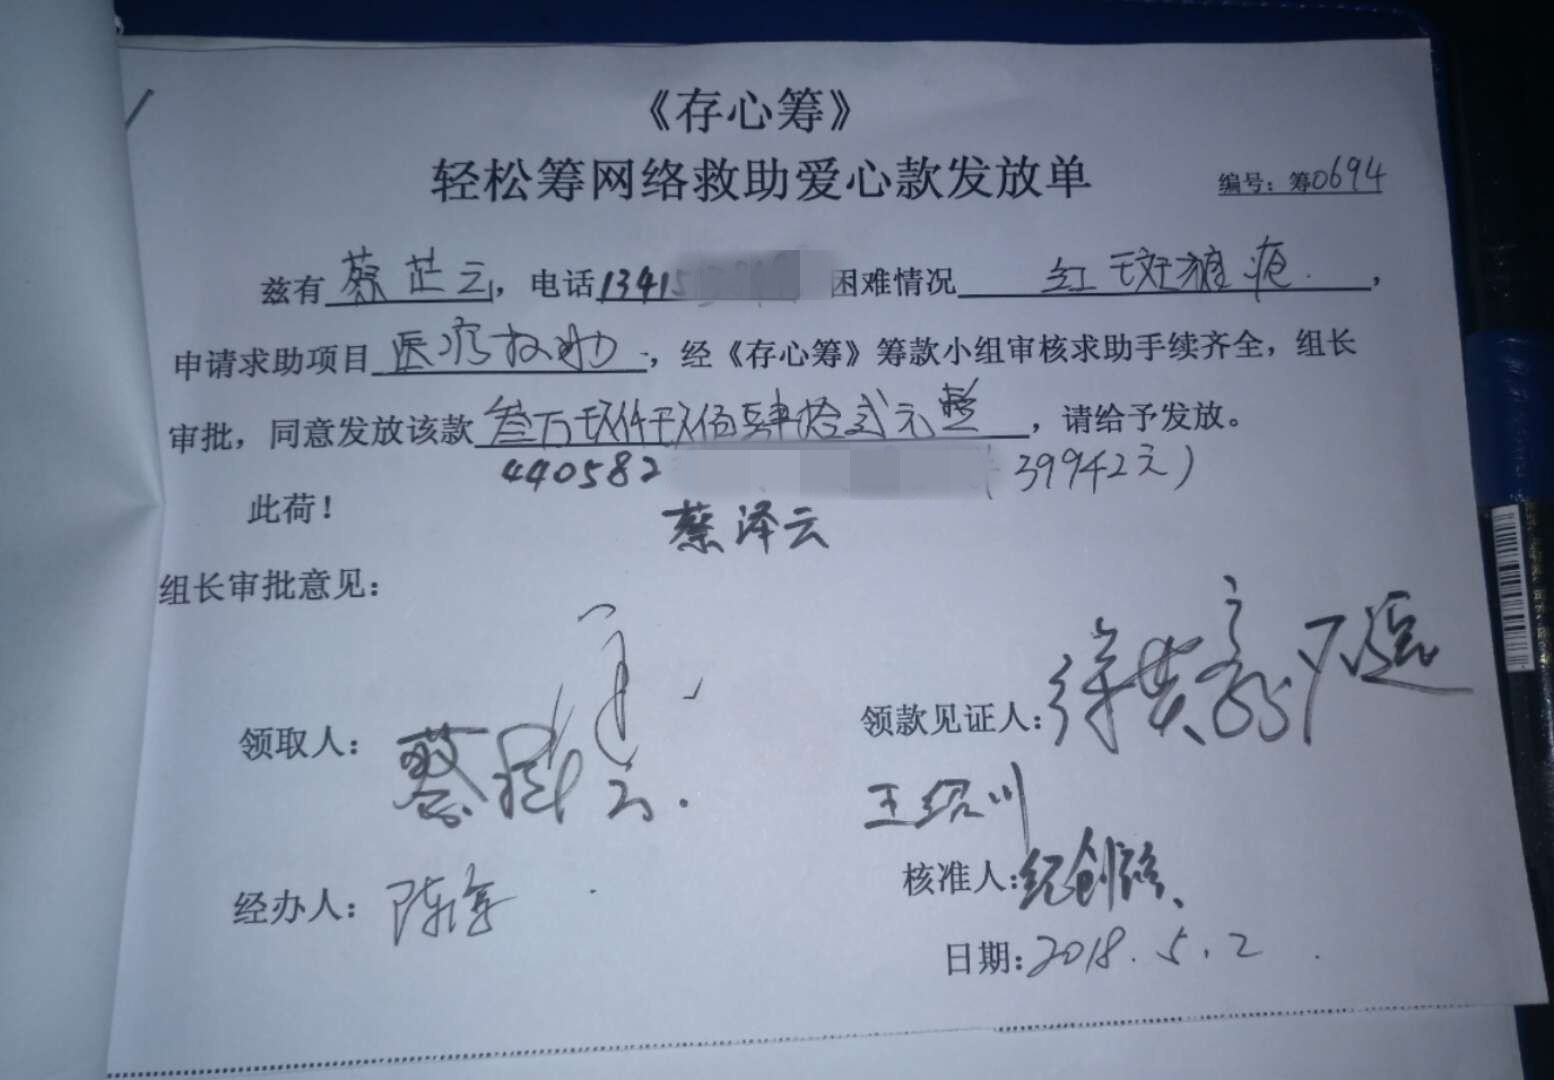 《存心筹》
轻松筹网络救助爱心款发放单
编号：筹0694
兹有蔡芷云，电话1341 困难情况 红斑狼疮.，
申请求助项目医疗救助，经《存心筹》筹款小组审核求助手续齐全，组长
审批，同意发放该款叁万玖仟玖佰肆拾贰元整，请给予发放。
440582 (39942元)
此荷！
蔡泽云
组长审批意见：
领取人：蔡 云.
领款见证人：徐
王绍川
经办人：陈
核准人：纪创
日期：2018.5.2